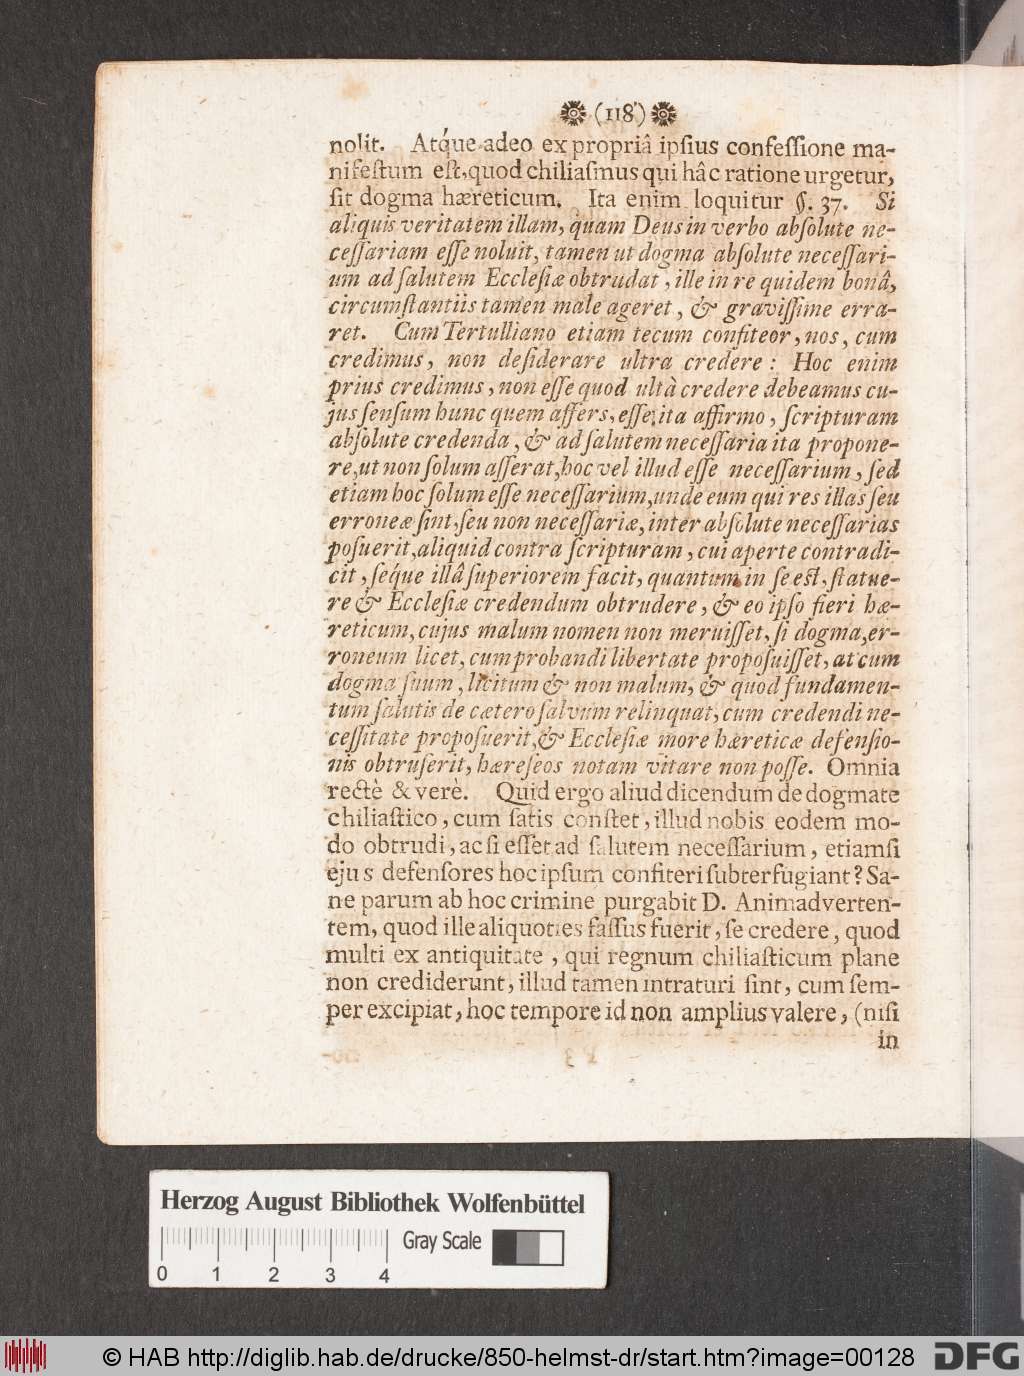 (118)
nolit. Atq́ue adeo ex propriâ ipsius confessione ma-
nifestum est, quod chiliaſmus qui hâc ratione urgetur,
ſit dogma hæreticum. Ita enim loquitur §. 37. Si
aliquis veritatem illam, quam Deus in verbo abſolute ne-
ceſſariam eſſe noluit, tamen ut dogma abſolute neceſſari-
um ad ſalutem Eccleſiæ obtrudat, ille in re quidem bonâ,
circumſtantiis tamen male ageret, & graviſſime erra-
ret. Cum Tertulliano etiam tecum confiteor, nos, cum
credimus, non deſiderare ultra credere: Hoc enim
prius credimus, non eſſe quod ultà credere debeamus cu-
jus ſenſum hunc quem affers, eſſe ita affirmo, ſcripturam
abſolute credenda, & ad ſalutem neceſſaria ita propone-
re, ut non ſolum aſſerat, hoc vel illud eſſe neceſſarium, ſed
etiam hoc ſolum eſſe neceſſarium, unde eum qui res illas ſeu
erroneæ ſint, ſeu non neceſſariæ, inter abſolute neceſſarias
poſuerit, aliquid contra ſcripturam, cui aperte contradi-
cit, ſeq́ue illâ ſuperiorem facit, quantum in ſe eſt, ſtatue-
re & Eccleſiæ credendum obtrudere, & eo ipſo fieri hæ-
reticum, cujus malum nomen non meruiſſet, ſi dogma, er-
roneum licet, cum probandi libertate propoſuiſſet, at cum
dogma ſuum, licitum & non malum, & quod fundamen-
tum ſalutis de cætero ſalvum relinquat, cum credendi ne-
ceſſitate propoſuerit, & Eccleſiæ more hæreticæ defenſio-
nis obtruſerit, hæreſeos notam vitare non poſſe. Omnia
rectè & verè. Quid ergo aliud dicendum de dogmate
chiliaſtico, cum ſatis conſtet, illud nobis eodem mo-
do obtrudi, ac ſi eſſet ad ſalutem neceſſarium, etiamſi
ejus defenſores hoc ipſum confiteri ſubterfugiant? Sa-
ne parum ab hoc crimine purgabit D. Animadverten-
tem, quod ille aliquoties faſſus fuerit, ſe credere, quod
multi ex antiquitate, qui regnum chiliaſticum plane
non crediderunt, illud tamen intraturi ſint, cum ſem-
per excipiat, hoc tempore id non amplius valere, (niſi
in
Herzog August Bibliothek Wolfenbüttel
Gray Scale
0 1 2 3 4
© HAB http://diglib.hab.de/drucke/850-helmst-dr/start.htm?image=00128
DFG